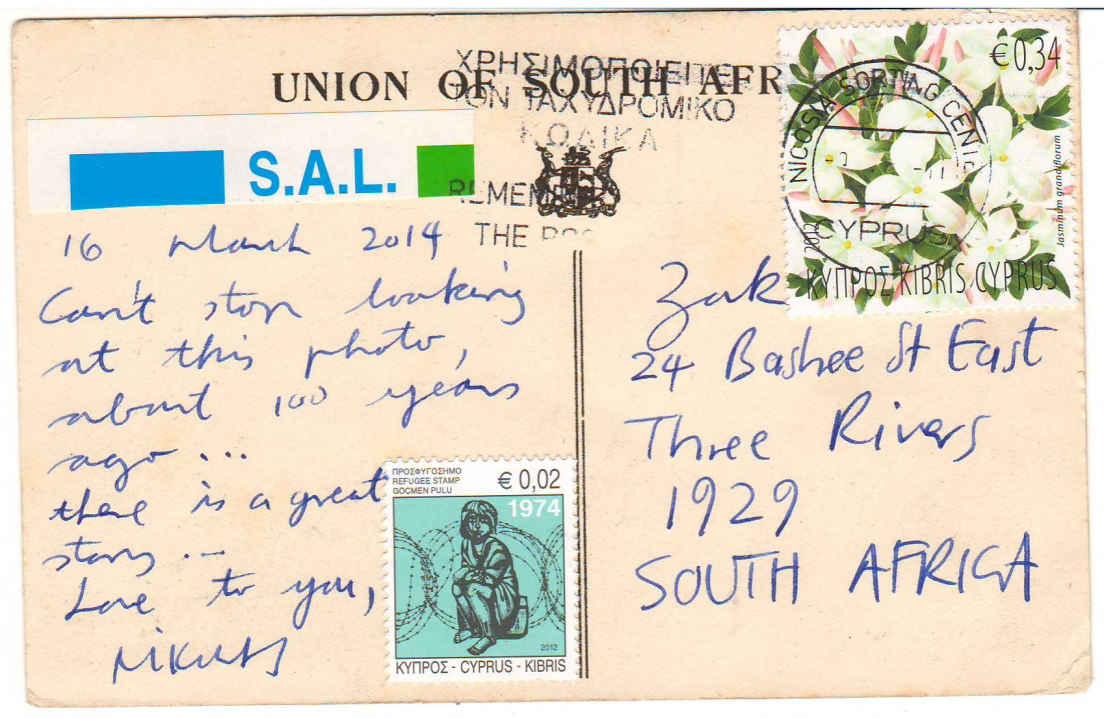 UNION OF SOUTH AFR
ΧΡΗΣΙΜΟΠΟΙΕΙΤΕ
ΤΟΝ ΤΑΧΥΔΡΟΜΙΚΟ
ΚΩΔΙΚΑ
REMEM
THE
S.A.L.
€0,34
NICOSIA SORTING CENT
CYPRUS
Jasminum grandiflorum
2012
ΚΥΠΡΟΣ KIBRIS CYPRUS
16 March 2014
Can't stop looking
at this photo,
about 100 years
ago...
there is a great
story...
Love to you,
Zak
24 Bashee St East
Three Rivers
1929
SOUTH AFRICA
ΠΡΟΣΦΥΓΟΣΗΜΟ
REFUGEE STAMP
GOCMEN PULU
€ 0,02
1974
2012
ΚΥΠΡΟΣ - CYPRUS - KIBRIS